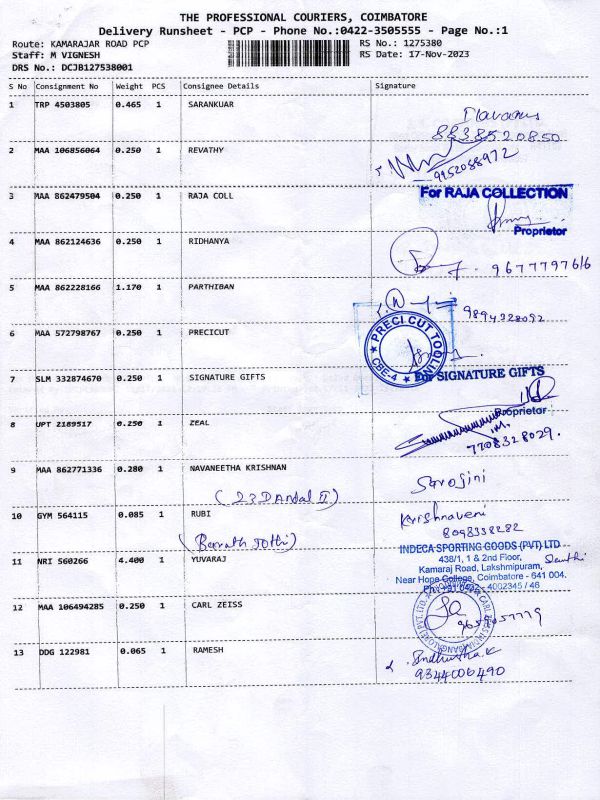 THE PROFESSIONAL COURIERS, COIMBATORE
Delivery Runsheet - PCP - Phone No.:0422-3505555 - Page No.:1
Route: KAMARAJAR ROAD PCP
Staff: M VIGNESH
DRS No.: DCJB127538001
RS No.: 1275380
RS Date: 17-Nov-2023
S No Consignment No Weight PCS Consignee Details Signature
1 TRP 4503805 0.465 1 SARANKUAR
8838520850
2 MAA 106856064 0.250 1 REVATHY
9952088972
3 MAA 862479504 0.250 1 RAJA COLL
For RAJA COLLECTION
Proprietor
4 MAA 862124636 0.250 1 RIDHANYA
9677797616
5 MAA 862228166 1.170 1 PARTHIBAN
9894928092
6 MAA 572798767 0.250 1 PRECICUT
PRECI CUT TOOLING
CBE-4
7 SLM 332874670 0.250 1 SIGNATURE GIFTS
For SIGNATURE GIFTS
Proprietor
8 UPT 2189517 0.250 1 ZEAL
7708328029.
9 MAA 862771336 0.280 1 NAVANEETHA KRISHNAN
Sarojini
10 GYM 564115 0.085 1 RUBI
Krishnaveni
8098338282
11 NRI 560266 4.400 1 YUVARAJ
INDECA SPORTING GOODS (PVT) LTD
438/1, 1 & 2nd Floor,
Kamaraj Road, Lakshmipuram,
Near Hope College, Coimbatore - 641 004.
Ph : 0422 - 4002345 / 46
12 MAA 106494285 0.250 1 CARL ZEISS
13 DDG 122981 0.065 1 RAMESH
9344006490